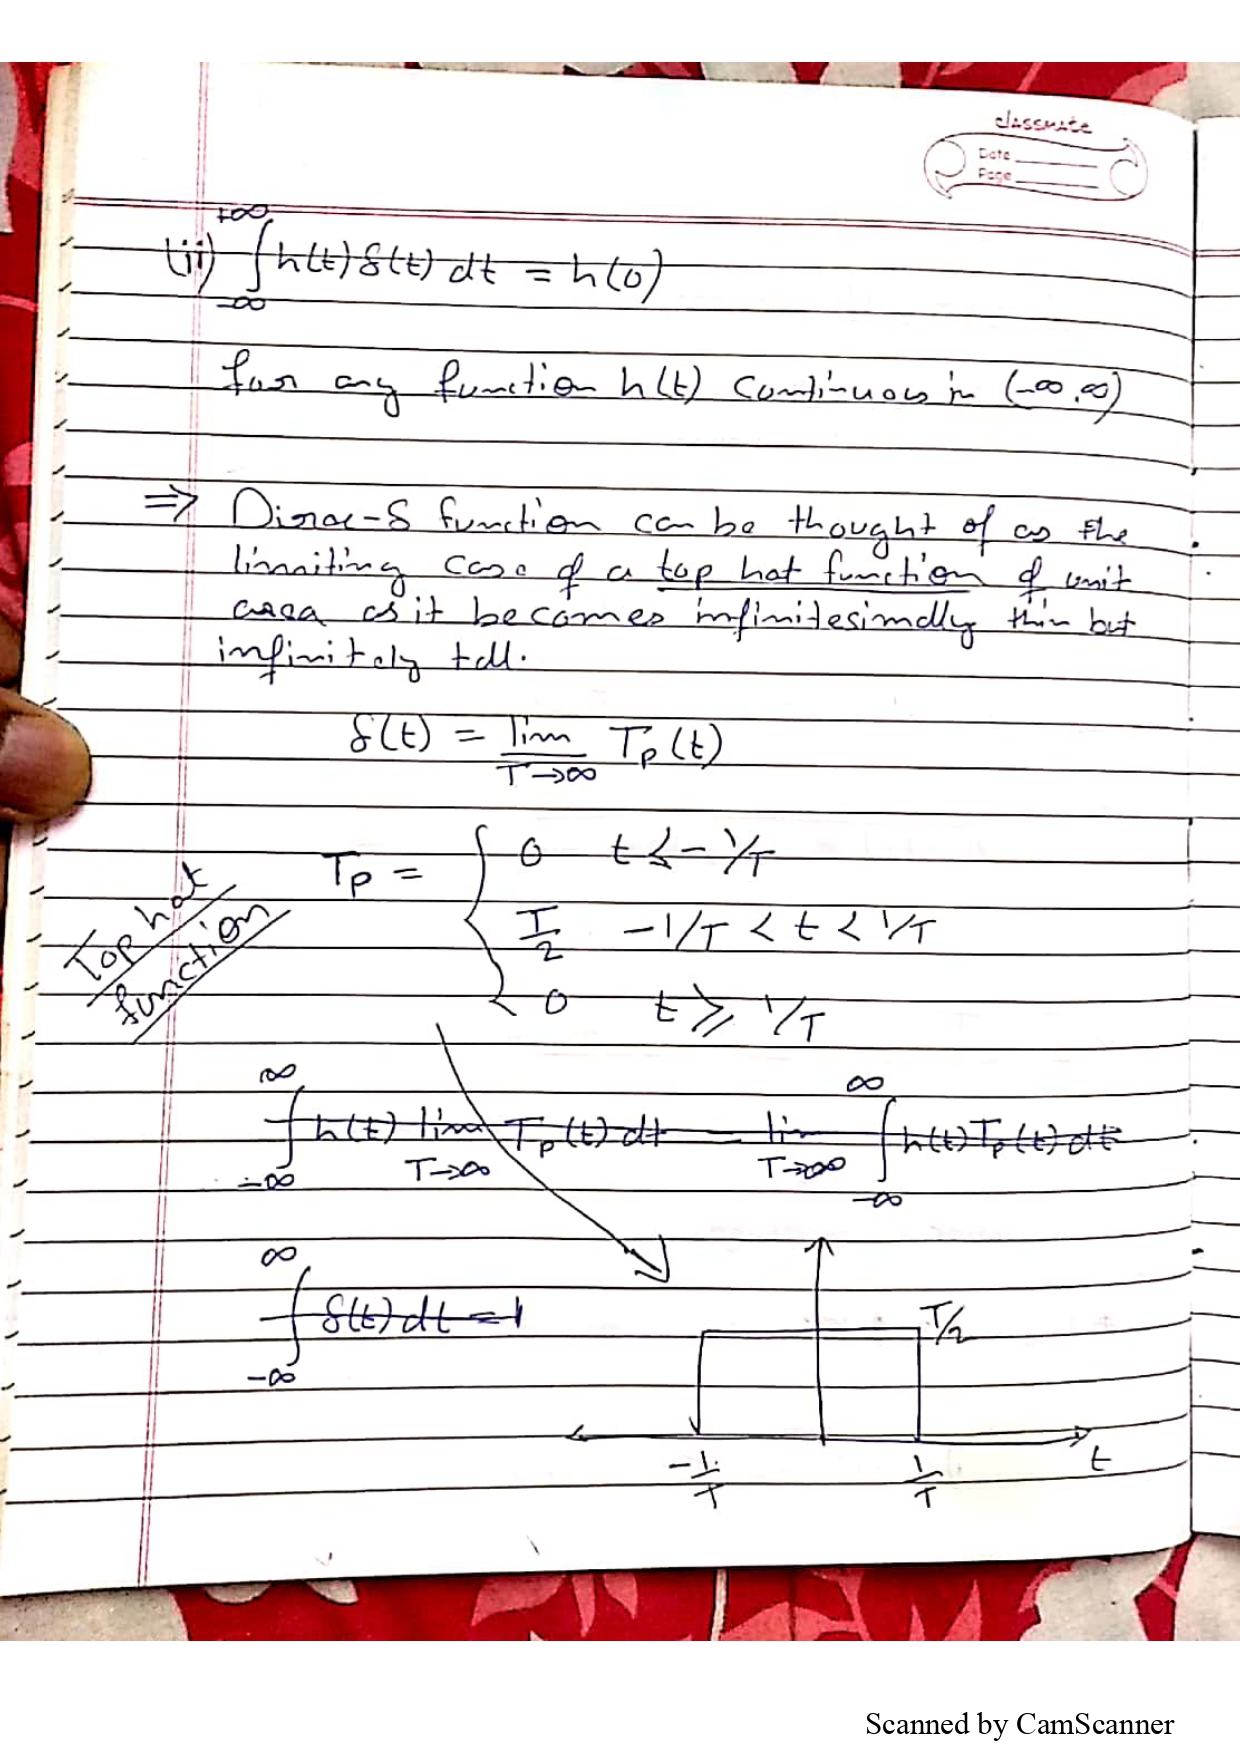 classmate
Date
Page
(ii) ∫_{-∞}^{+∞} h(t) δ(t) dt = h(0)
for any function h(t) continuous in (-∞,∞)
⇒ Dirac-δ function can be thought of as the
limiting case of a top hat function of unit
area as it becomes infinitesimally thin but
infinitely tall.
δ(t) = lim_{T→∞} T_p(t)
T_p = { 0 t ≤ -1/T
T/2 -1/T < t < 1/T
0 t ⩾ 1/T
Top hat
function
∫_{-∞}^{∞} h(t) lim_{T→∞} T_p(t) dt = lim_{T→∞} ∫_{-∞}^{∞} h(t) T_p(t) dt
∫_{-∞}^{∞} δ(t) dt = 1
T/2
-1/T 1/T t
Scanned by CamScanner